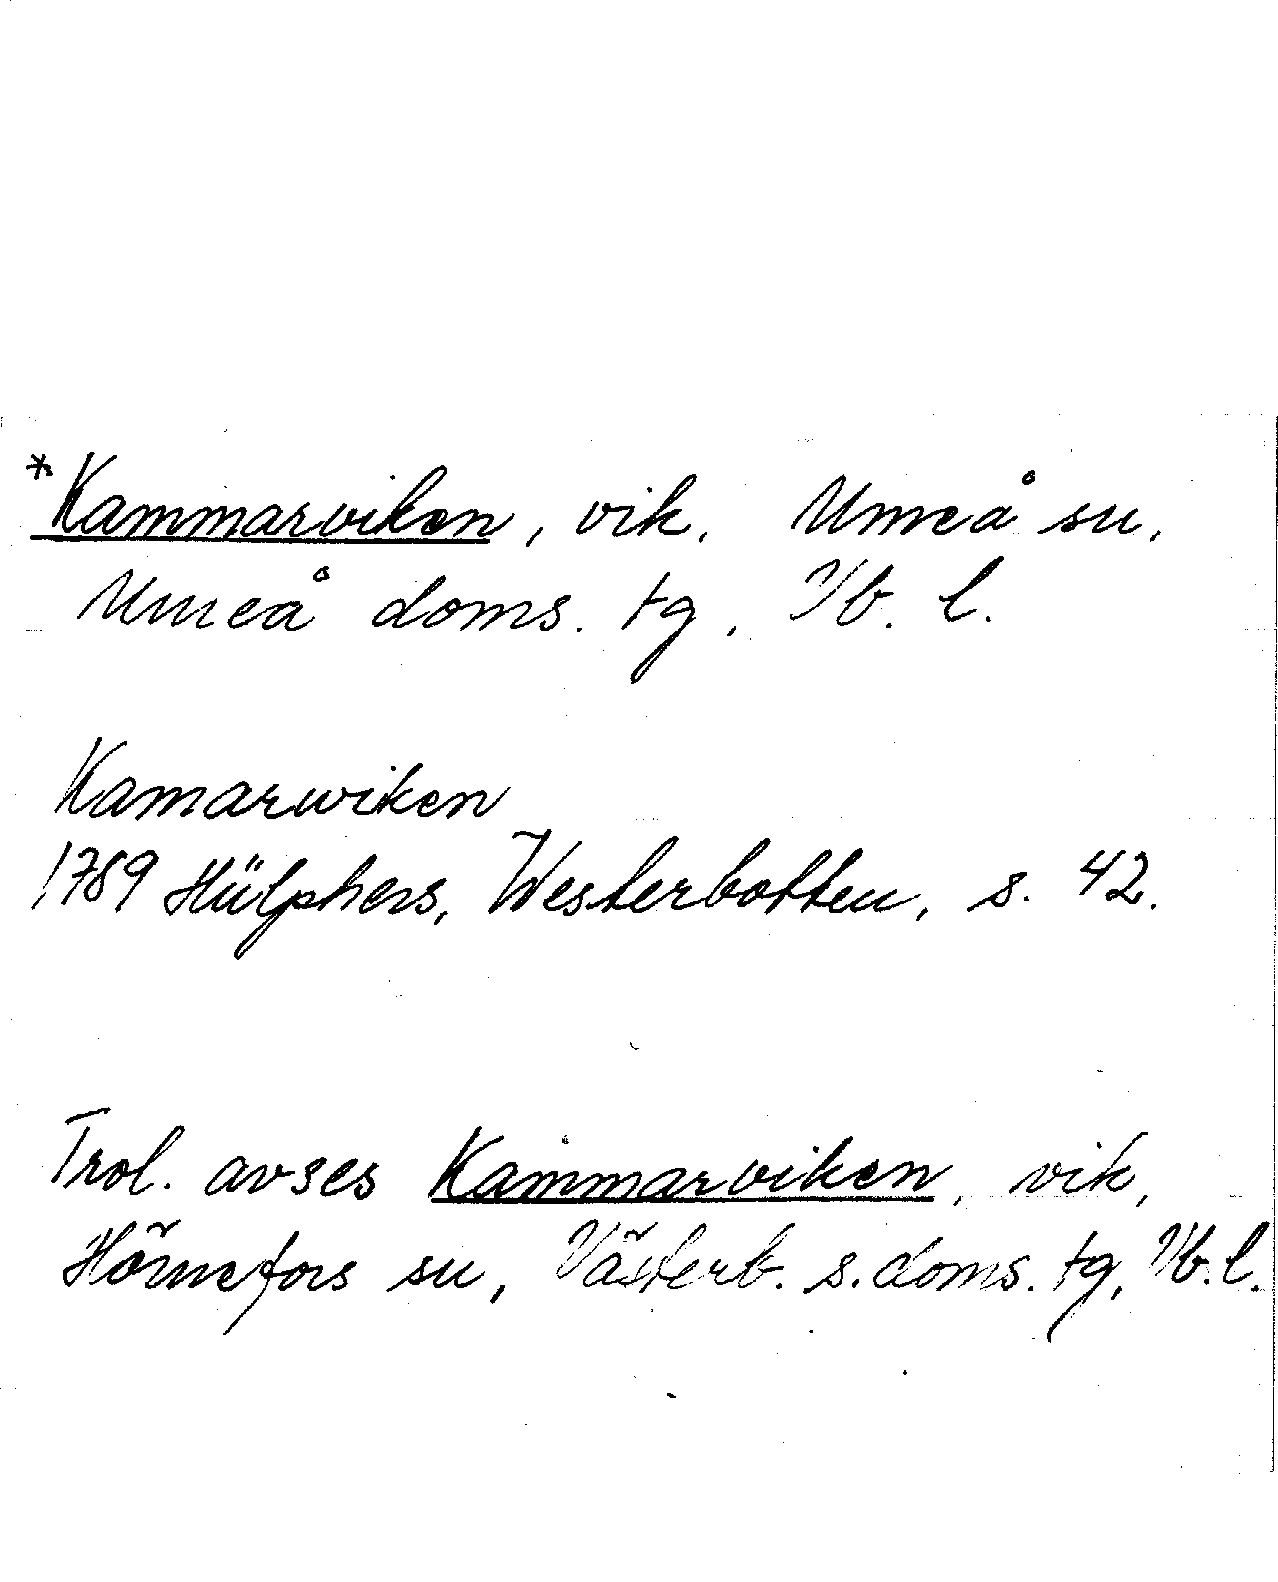 *Kammarviken, vik. Umeå su.
Umeå doms. tg. Vb. l.
Kamarwiken
1789 Hülphers, Westerbotten, s. 42.
Trol. avses Kammarviken, vik,
Hörnefors su, Västerb. s. doms. tg, Vb. l.